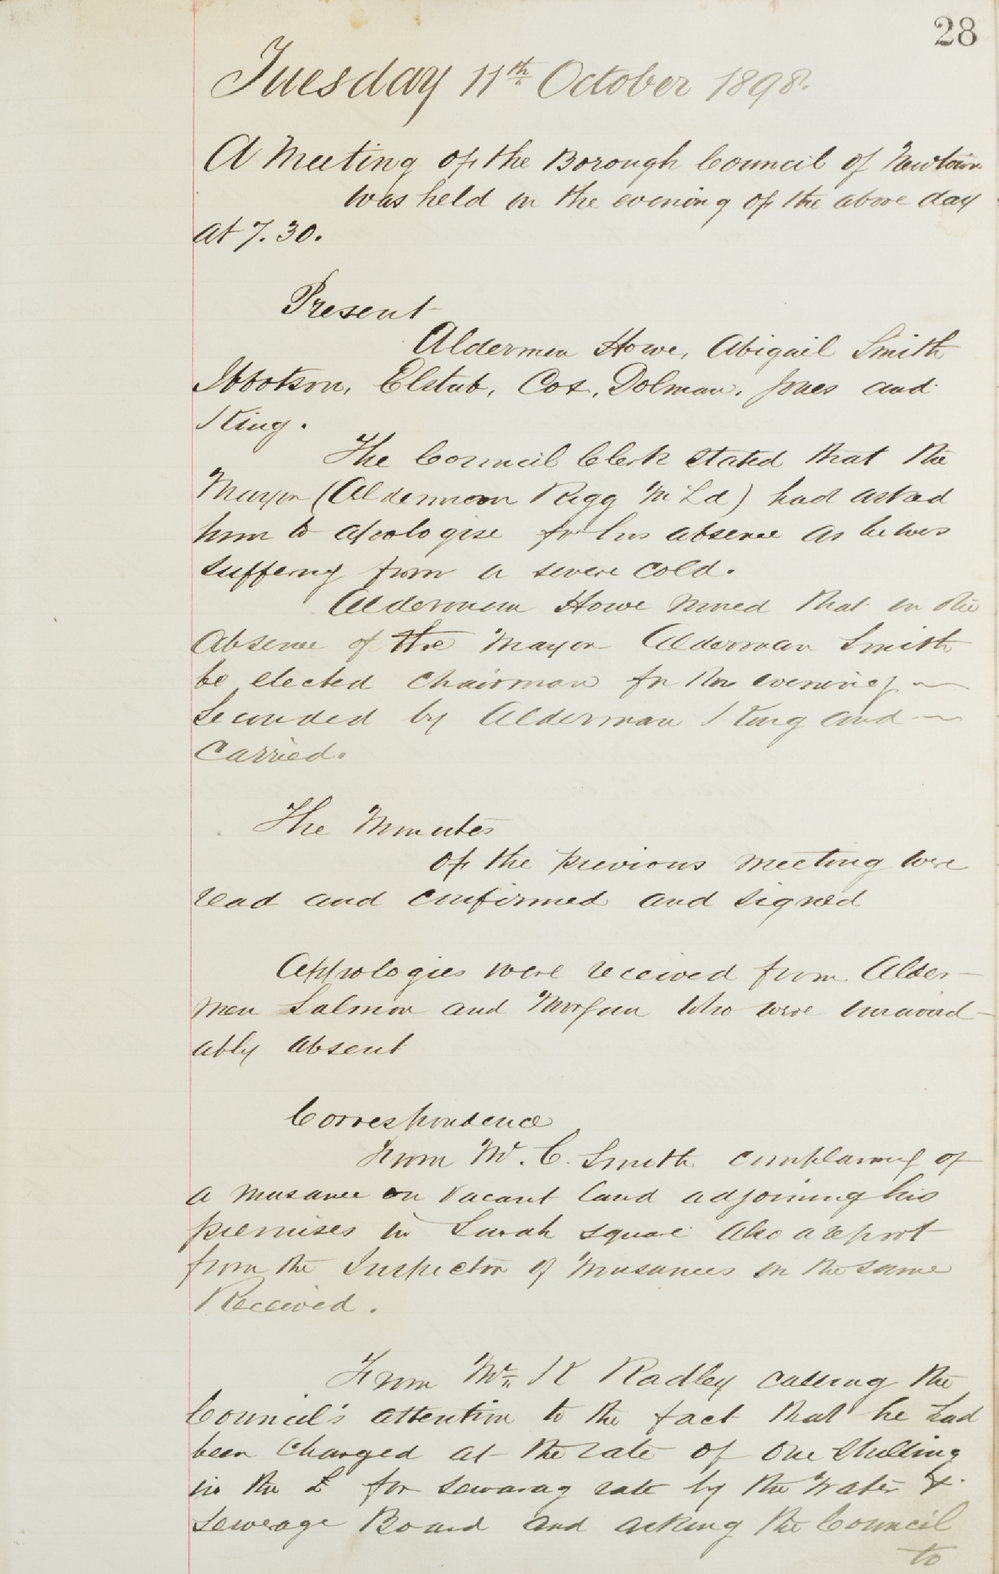 28
Tuesday 11th October 1898.
A Meeting of the Borough Council of Newtown
was held on the evening of the above day
at 7.30.
Present
Aldermen Howe, Abigail Smith
Ibbotson, Elstub, Cox, Dolman, Jones and
King.
The Council Clerk stated that the
Mayor (Alderman Rigg M Ld) had asked
him to apologise for his absence as he was
suffering from a severe cold.
Alderman Howe moved that in the
absence of the Mayor Alderman Smith
be elected Chairman for the evening —
Seconded by Alderman King and —
carried.
The Minutes
of the previous meeting were
read and confirmed and signed
Appologies were received from Alder-
men Salmon and Morgan who were unavoid-
ably absent
Correspondence
From Mr. C. Smith complaining of
a nusance on vacant land adjoining his
premises in Sarah square also a report
from the Inspector of nusances on the same
Received.
From Mr. K Radley calling the
Council's attention to the fact that he had
been charged at the rate of One Shilling
in the £ for sewarag rate by the Water &
Sewerage Board and asking the Council
to